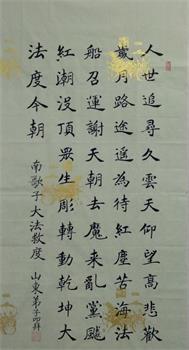 人世追尋久雲天仰望高悲歡
歲月路途遙為待紅塵苦海法
船召運謝天朝去魔来亂黨飈
紅潮沒頂眾生彫轉動乾坤大
法度今朝
南歌子大法救度
山東弟子叩拜